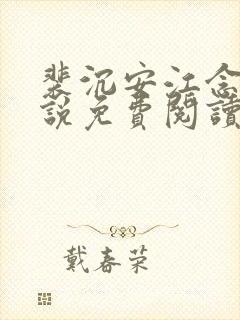 裴沉安江念
說免費閱讀
戴春荣